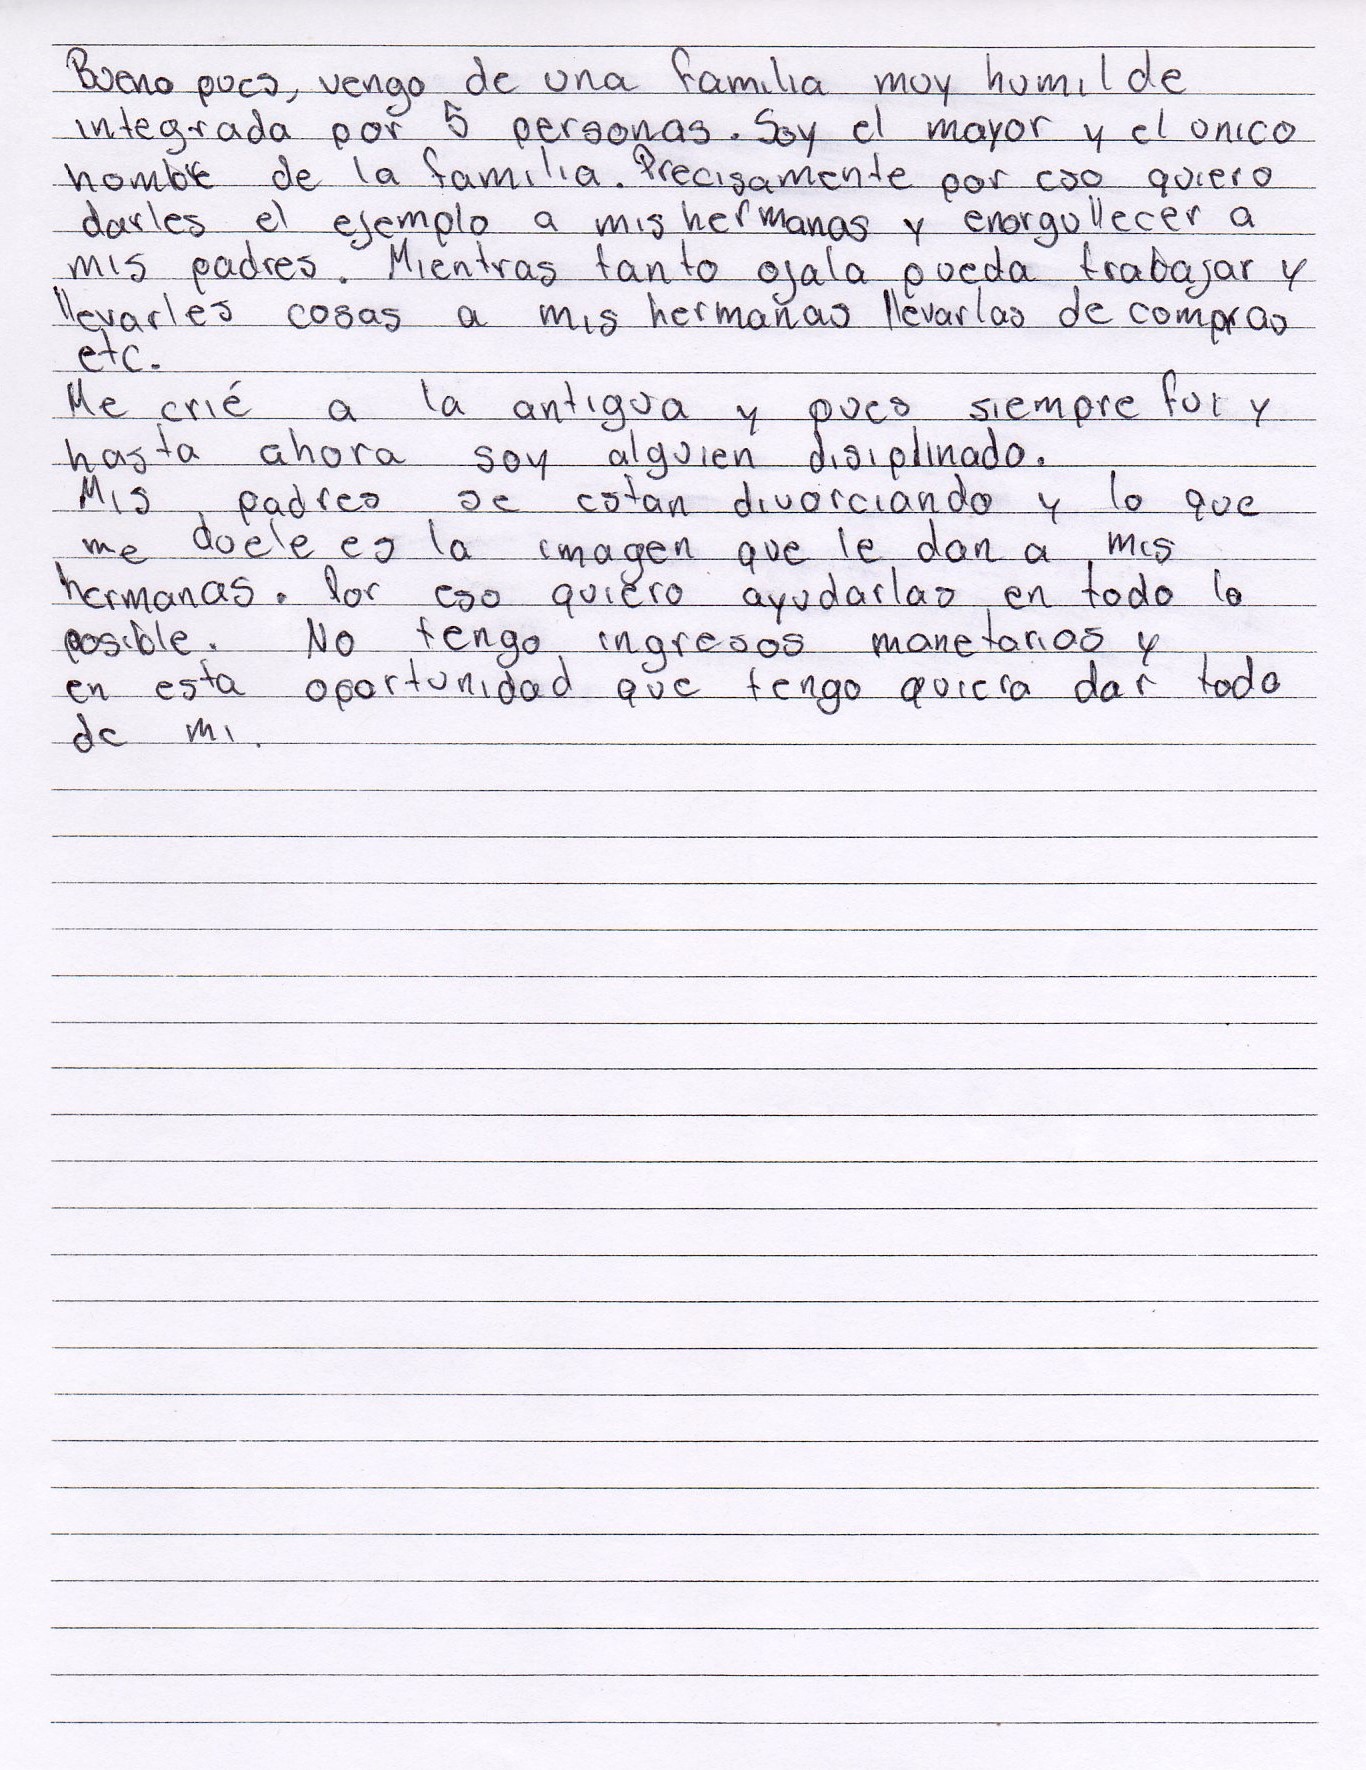 Bueno pues, vengo de una familia muy humilde
integrada por 5 personas. Soy el mayor y el unico
hombre de la familia. Precisamente por eso quiero
darles el ejemplo a mis hermanas y enorgullecer a
mis padres. Mientras tanto ojala pueda trabajar y
llevarles cosas a mis hermanas llevarlas de compras
etc.
Me crié a la antigua y pues siempre fui y
hasta ahora soy alguien disiplinado.
Mis padres se estan divorciando y lo que
me duele es la imagen que le dan a mis
hermanas. Por eso quiero ayudarlas en todo lo
posible. No tengo ingresos manetarios y
en esta oportunidad que tengo quiera dar todo
de mi.